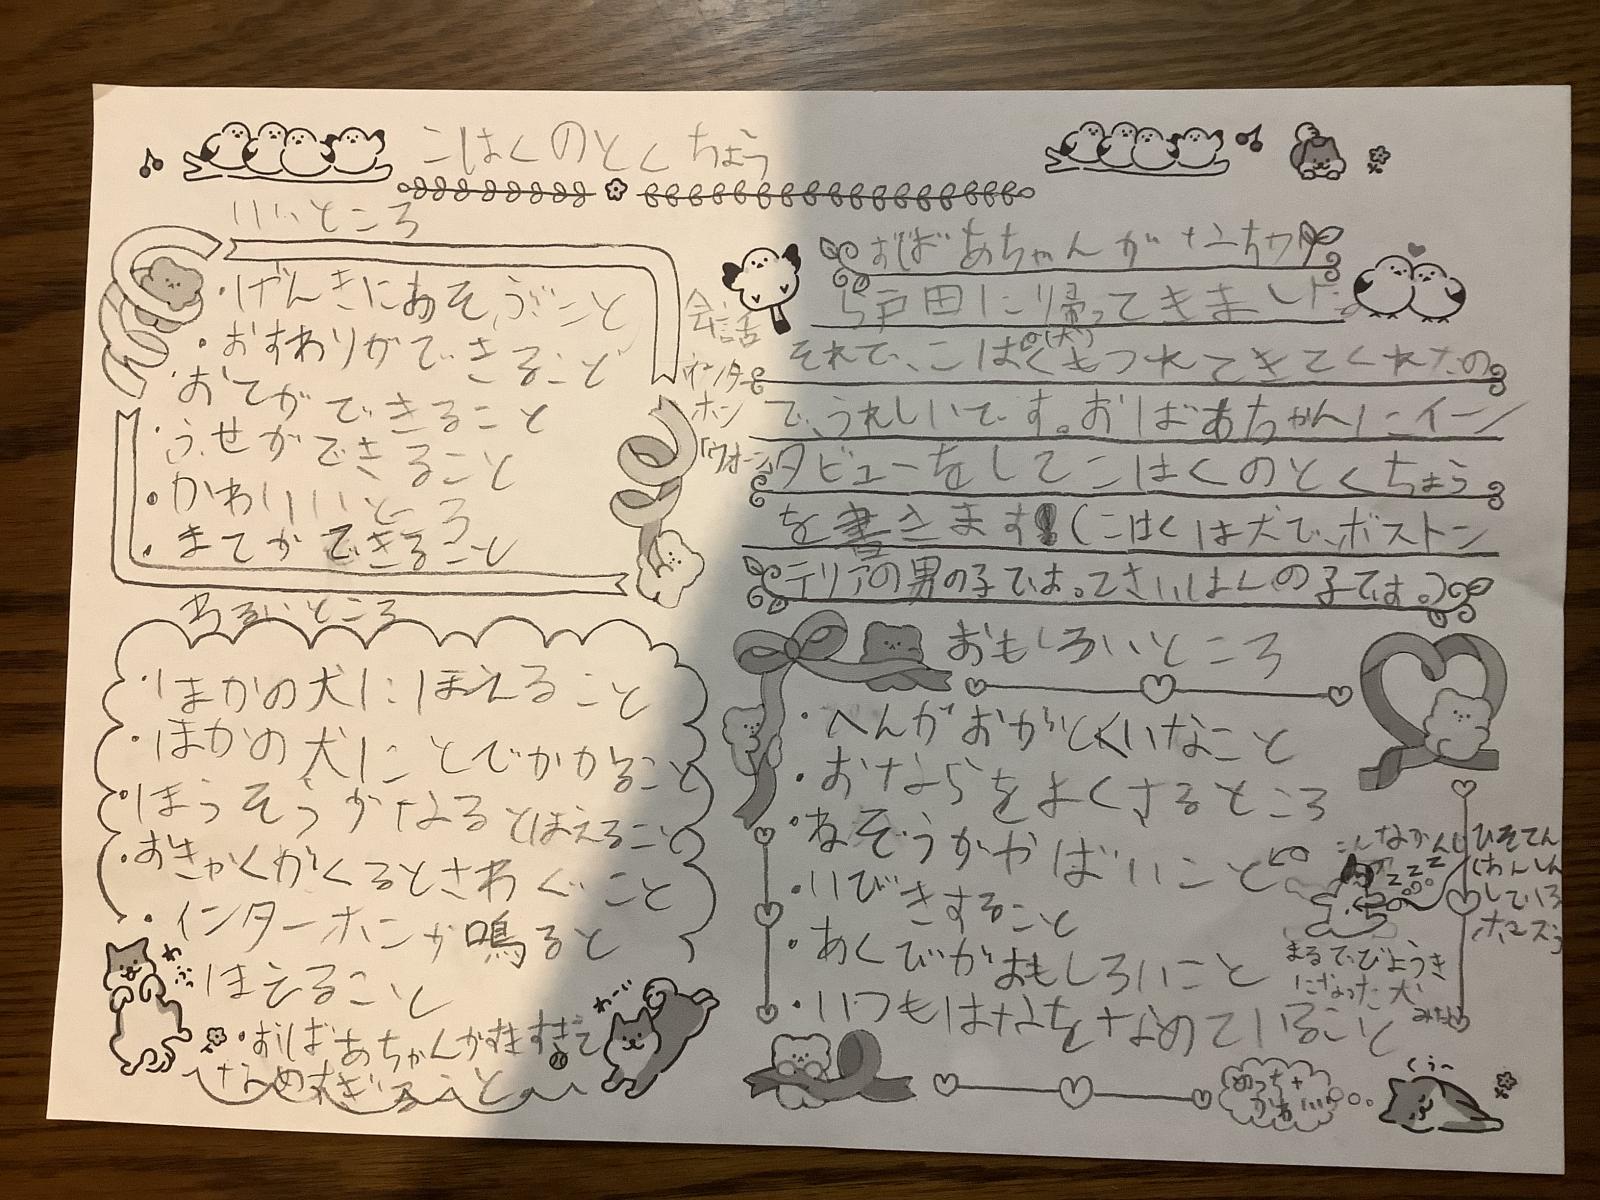 こはくのとくちょう
いいところ
・げんきにあそぶこと
・おすわりができること
おてができること
・ふせができること
・かわいいところ
・まてができること
わるいところ
・ほかの犬にほえること
・ほかの犬にとびかかること
・ほうそうがなるとほえること
・おきゃくがくるとさわぐこと
・インターホンが鳴ると
ほえること
・おばあちゃんがすきすぎて
なめすぎること
わふっ
わーい
会話
インター
ホン
おばあちゃんが
ら戸田に帰ってきました。
それで、こはく(犬)もつれてきてくれたの
で、うれしいです。おばあちゃんにイン
タビューをしてこはくのとくちょう
を書きます!(こはくは犬で、ボストン
テリアの男の子です。
おもしろいところ
・へんがおがとくいなこと
・おならをよくするところ
・ねぞうがやばいこと
・いびきすること
・あくびがおもしろいこと
・いつもはなをなめていること
こんなかんじ
zzz
まるで、びょうき
になった犬
みたい
めっちゃ
かわいい
くぅ〜